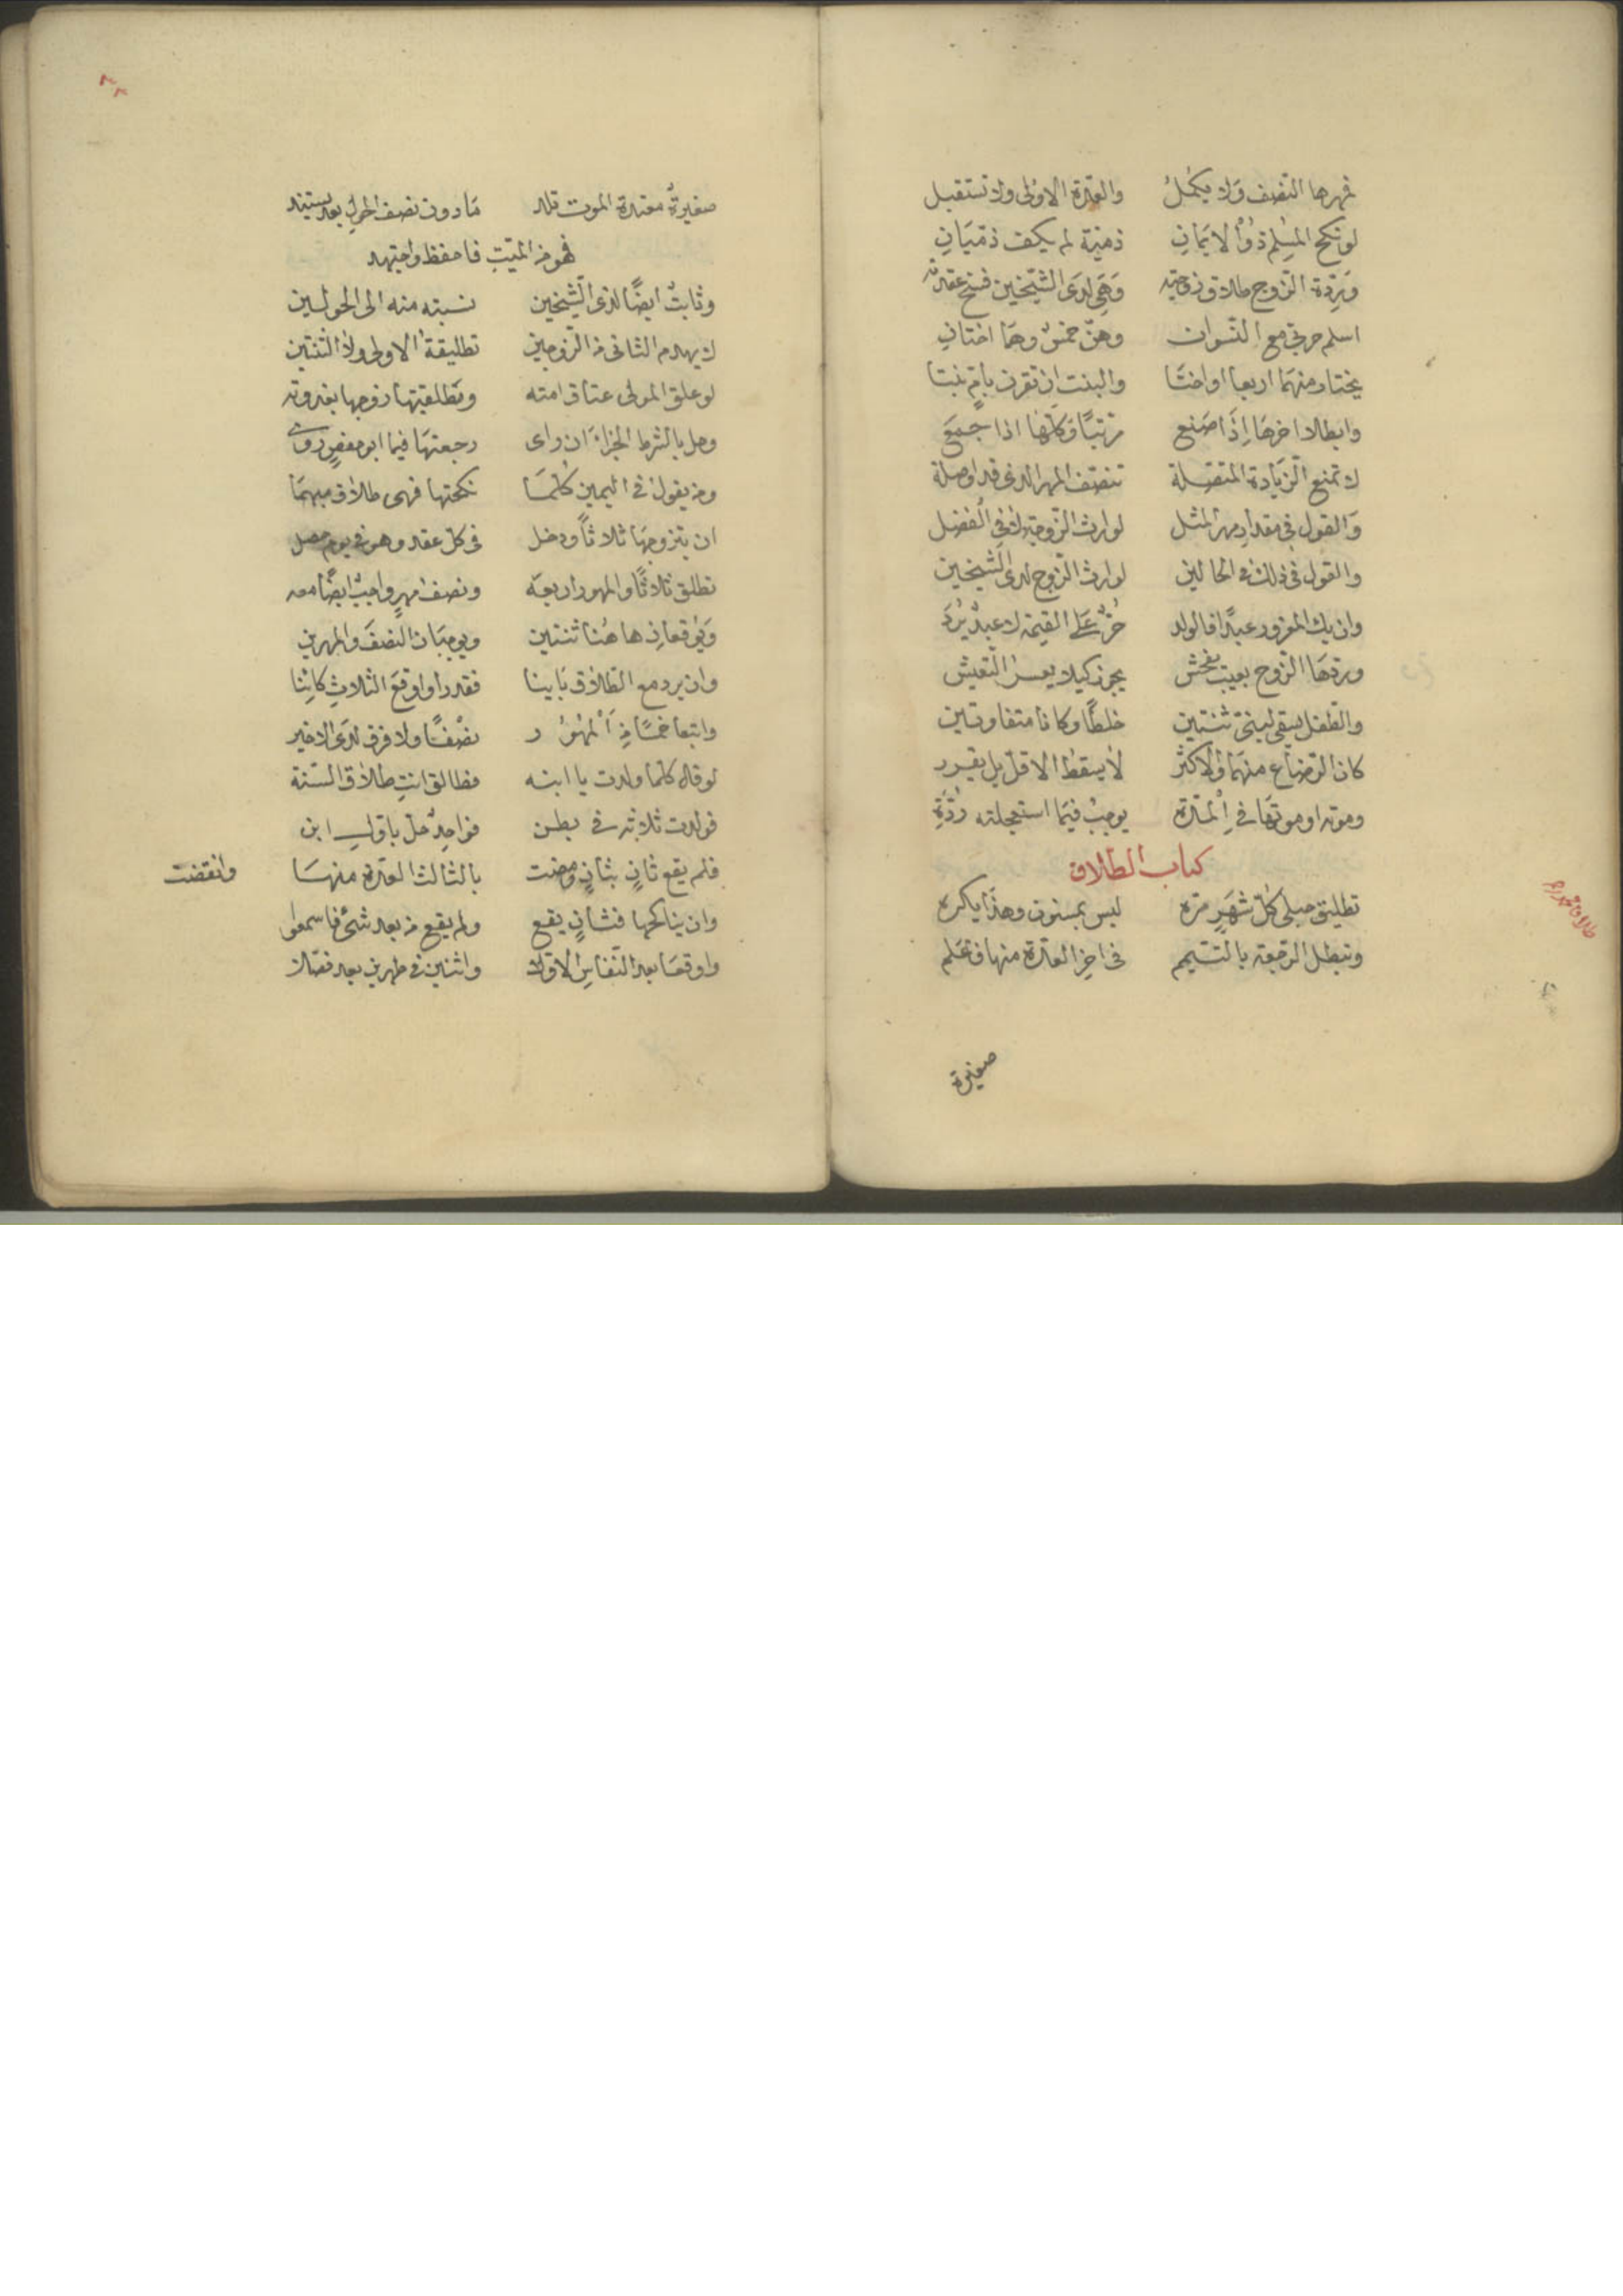 فمهرها النصف ولا يكمل والعدة الاولى ولا تستقبل
لو نكح المسلم ذو الايمان ذمية لم يكف ذميان
وردة الزوج طلاق زوجته وهي لدى الشيخين فسخ عقدته
اسلم حربي مع النسوان وهن خمس وهما اختان
يختار منهما اربعا او اختا والبنت ان تقرن بام بنتا
وابطلا اخرها اذا صنع مرتبا وكلها اذا جمع
لا تمنع الزيادة المتصلة تنصف المهر الذي قد اوصله
والقول في مقدار مهر المثل لوارث الزوجة لا في الفضل
والقول في ذلك في الحالين لوارث الزوج لدى الشيخين
وان يك المغرور عبدا فالولد حر على القيمة لا عبد يرد
وردها الزوج بعيب يفحش يجوز كيلا يعسر التعيش
والطفل يسقى لبني ثنتين خلطا وكانا متفاوتين
كان الرضاع منهما والاكثر لا يسقط الاقل بل يقرر
وموته او موتها في المدة يوجب فيما استعجلته رده
كتاب الطلاق
تطليق حبلى كل شهر مره ليس بمسنون وهذا يكره
وتبطل الرجعة بالتيمم في اخر العدة منها فاعلم
صغيرة
صغيرة معتدة الموت تلد ما دون نصف الحول بعد يستند
فهو من الميت فاحفظ واجتهد
وثابت ايضا لذى الشيخين نسبته منه الى الحولين
لا يهدم الثاني من الزوجين تطليقة الاولى ولا الثنتين
لو علق المولى عتاق امته وتطليقتها زوجها بغدوته
وحل بالشرط الجزاء ان راى رجعتها فيما ابو حفص روى
ومن يقول في اليمين كلما نكحتها فهي طلاق مبهما
ان يتزوجها ثلاثا ودخل في كل عقد وهو في يوم حصل
تطلق ثلاثا والمهور اربعه ونصف مهر واجب ايضا معه
ويوقعان ها هنا ثنتين ويوجبان النصف والمهرين
وان يرد مع الطلاق باينا فقد راو اوقع الثلاث كائنا
واتبعا خمسا من المهور نصفا ولا فرق لدى الاخير
لو قال كلما ولدت يا ابنه فطالق انت طلاق السنة
فولدت ثلاثة في بطن فواحد حل باول ابن
فلم يقع ثان بثان ومضت بالثالث العدة منها وانقضت
وان يناكحها فثان يقع ولم يقع من بعد شئ فاسمعوا
واوقعا بعد النفاس الاولا واثنين في طهرين بعد فصلا